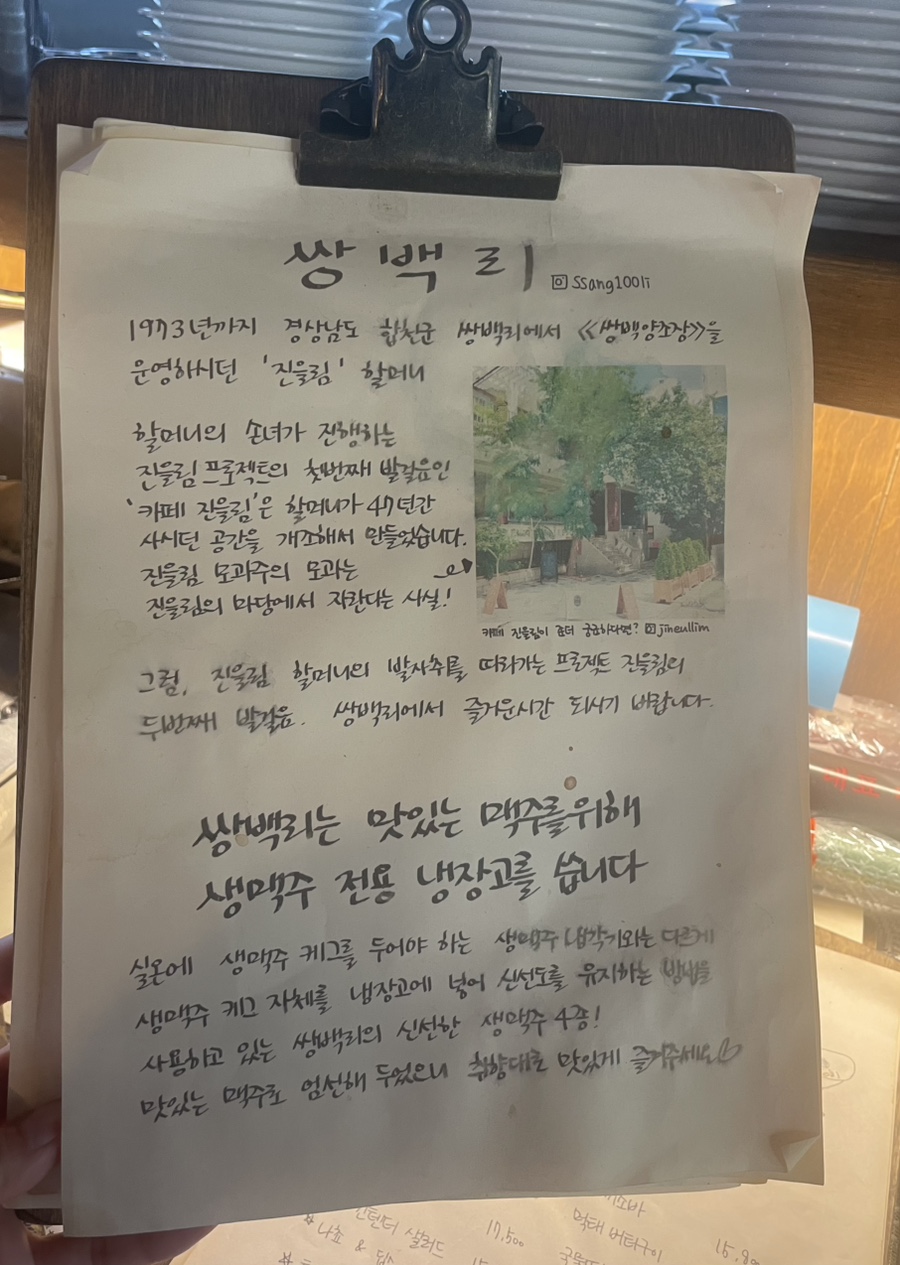 쌍백리
ssang100li
1973년까지 경상남도 합천군 쌍백리에서 《쌍백양조장》을
운영하시던 '진을림' 할머니
할머니의 손녀가 진행하는
진을림 프로젝트의 첫번째 발걸음인
'카페 진을림'은 할머니가 47년간
사시던 공간을 개조해서 만들었습니다.
진을림 모과주의 모과는
진을림의 마당에서 자란다는 사실!
카페 진을림이 좀더 궁금하다면? jineullim
그럼, 진을림 할머니의 발자취를 따라가는 프로젝트 진을림의
두번째 발걸음. 쌍백리에서 즐거운시간 되시기 바랍니다.
쌍백리는 맛있는 맥주를위해
생맥주 전용 냉장고를 씁니다
실온에 생맥주 케그를 두어야 하는 생맥주 냉각기와는 다르게
생맥주 케그 자체를 냉장고에 넣어 신선도를 유지하는 방법을
사용하고 있는 쌍백리의 신선한 생맥주 4종!
맛있는 맥주로 엄선해 두었으니 취향대로 맛있게 즐겨주세요
샐러드 17,500 먹태 버터구이 15,8
나쵸 &